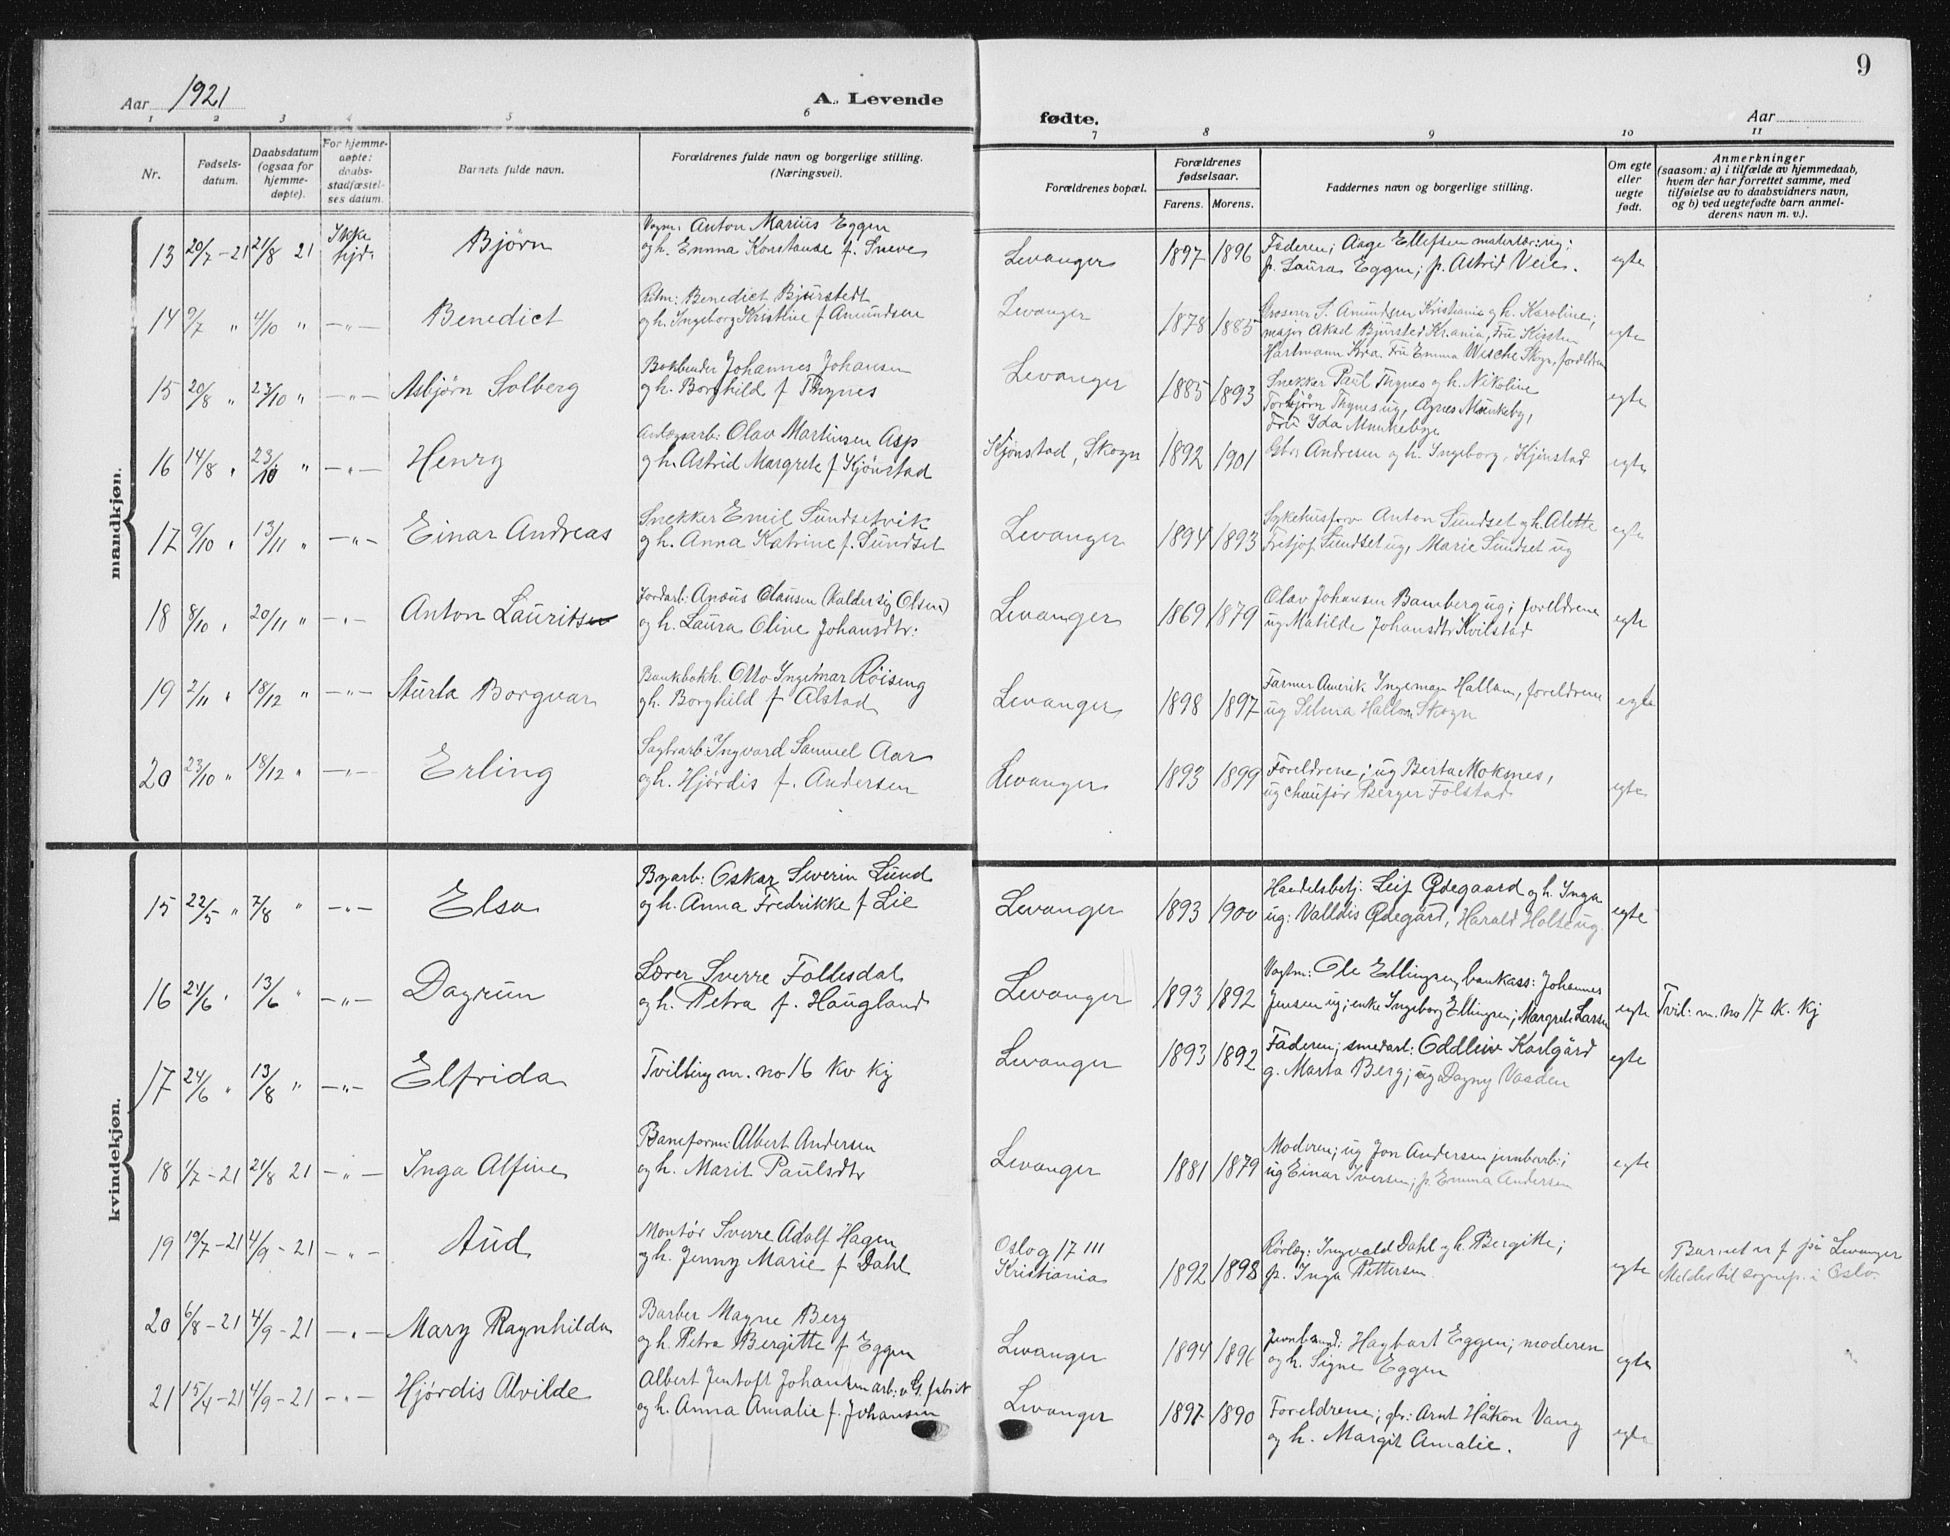 9
Aar 1921
A. Levende
fødte.
Aar
1 2 3 4 5 6 7 8 9 10 11
Nr.
Fødsels-
datum.
Daabsdatum
(ogsaa for
hjemme-
døpte).
For hjemme-
døpte:
daabs-
stadfæstel-
ses datum.
Barnets fulde navn.
Forældrenes fulde navn og borgerlige stilling.
(Næringsvei).
Forældrenes bopæl.
Forældrenes
fødselsaar.
Farens. Morens.
Faddernes navn og borgerlige stilling.
Om egte
eller
uegte
født.
Anmerkninger
(saasom: a) i tilfælde av hjemmedaab,
hvem der har forrettet samme, med
tilføielse av to daabsvidners navn,
og b) ved uegtefødte barn anmel-
derens navn m. v.).
mandkjøn.
13 20/7-21 21/8 21 Ikke hjd. Bjørn
Vogm: Anton Marius Eggen
og h. Emma Konstanse f. Sneve
Levanger 1897 1896
Faderen; Aage Ellefsen
p. Laura Eggen; p. Astrid Veie.
egte
14 9/7 " 4/10 " -"- Benedict
Ritm: Benedict Bjurstedt
og h. Ingeborg Kristine f Amundsen
Levanger 1878 1885
Grosserer S. Amundsen Kristiania og h. Karoline;
major Aksel Bjursted Krania, Fru Kirsten
Hartmann Kra. Fru Emma Wesche Skogn, foreldrene
egte
15 20/8 " 23/10 " -"- Asbjørn Solberg
Bokbinder Johannes Johansen
og h. Borghild f Thynes
Levanger 1885 1893
Snekker Paul Thynes og h. Nikoline
Torbjørn Thynes ug, Agnes Munkeby,
Fru Ida Munkebye
egte
16 14/8 " 23/10 " -"- Henry
Anlægsarb: Olav Martinsen Asp
og h. Astrid Margrete f Kjönstad
Kjönstad, Skogn 1892 1901
Gbr. Andresen og h. Ingeborg, Kjönstad
egte
17 9/10 " 13/11 " -"- Einar Andreas
Snekker Emil Sundsetvik
og h. Anna Katrine f. Sundset
Levanger 1894 1893
Sykehusforv Anton Sundset og h. Alette
Fretjof Sundset ug, Marie Sundset ug
egte
18 8/10 " 20/11 " -"- Anton Lauritsen
Jordarb: Anæus Olausen (kalder sig Olsen)
og h. Laura Oline Johansdtr:
Levanger 1869 1879
Olav Johansen Bamberg ug; foreldrene
ug Matilde Johansdtr Kvilstad
egte
19 2/11 " 18/12 " -"- Sturla Borgvar
Bankbokh. Otto Ingemar Röising
og h. Borghild f Alstad
Levanger 1898 1897
Farmer Amerik Ingeman Hallam, foreldrene
ug Selma Hallam Skogn
egte
20 23/10 " 18/12 " -"- Erling
Sagbrarb: Ingvard Samuel Aar
og h. Hjørdis f. Andersen
Levanger 1893 1899
Foreldrene; ug Berta Moksnes,
ug chauför Berger Folstad
egte
kvindekjøn.
15 22/5 " 7/8 " -"- Elsa
Byarb: Oskar Severin Lund
og h. Anna Fredrikke f Lie
Levanger 1893 1900
Handelsbetj: Leif Ødegaard og h. Inga
ug: Valldis Ødegård, Harald Holte ug.
egte
16 24/6 " 13/6 " -"- Dagrun
Lærer Sverre Follesdal
og h. Petra f. Haugland
Levanger 1893 1892
Vogtm: Ole Ellingsen, bankass: Johannes
Jensen ug; enke Ingeborg Ellingsen; Margrete Larsen
egte
Tvil: m. no 17 K. Kj
17 24/6 " 13/8 " -"- Elfrida
Tvilling m. no 16 Kv Kj
Levanger 1893 1892
Faderen; smedarb: Oddleiv Karlgård
g. Marta Berg; ug Dagny Vasden
egte
18 1/7-21 21/8 21 -"- Inga Alfine
Baneform: Albert Andersen
og h. Marit Paulsdtr
Levanger 1881 1879
Moderen; ug Jon Andersen jernbarb;
ug Einar Iversen; p. Emma Andersen
egte
19 19/7-21 4/9-21 -"- Aud
Montør Sverre Adolf Hagen
og h. Jenny Marie f Dahl
Oslo g 17 III
Kristiania 1892 1898
Rörlæg: Ingvald Dahl og h. Bergitte;
p. Inga Pettersen
egte
Barnet er f på Levanger
Meldes til sognep. i Oslo
20 6/8-21 4/9-21 -"- Mary Ragnhilda
Barber Magne Berg
og h. Petra Bergitte f Eggen
Levanger 1894 1896
Hagbart Eggen; moderen
og h. Signe Eggen
egte
21 15/4-21 4/9-21 -"- Hjördis Alvilde
Albert Jentoft Johansen arb: v G. fabrik
og h. Anna Amalie f. Johansen
Levanger 1897 1890
Foreldrene; gbr: Arnt Håkon Vang
og h. Margit Amalie.
egte